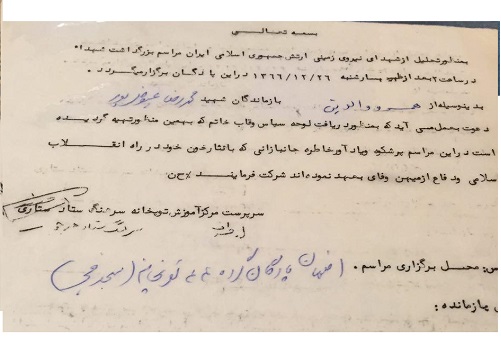 بسمه تعالی
بمنظور تجلیل از شهدای نیروی زمینی ارتش جمهوری اسلامی ایران مراسم بزرگداشت شهداء
در ساعت ۲ بعد از ظهر چهارشنبه ۱۳۶۶/۱۲/۲۶ در این پادگان برگزار میگردد.
بدینوسیله از همسر و والدین بازماندگان شهید
دعوت بعمل می آید که بمنظور دریافت لوحه سپاس و قاب خاتم که بهمین منظور تهیه گردیده
است در این مراسم پرشکوه و یادآور خاطره جانبازانی که با نثار خون خود در راه انقلاب
سلامی و دفاع از میهن وفای بعهد نموده اند شرکت فرمایند
سرپرست مرکز آموزش توپخانه سرهنگ ستاد ستاری
محل برگزاری مراسم . اصفهان پادگان گروه ۴۴ توپخانه (مسجد
بازمانده :